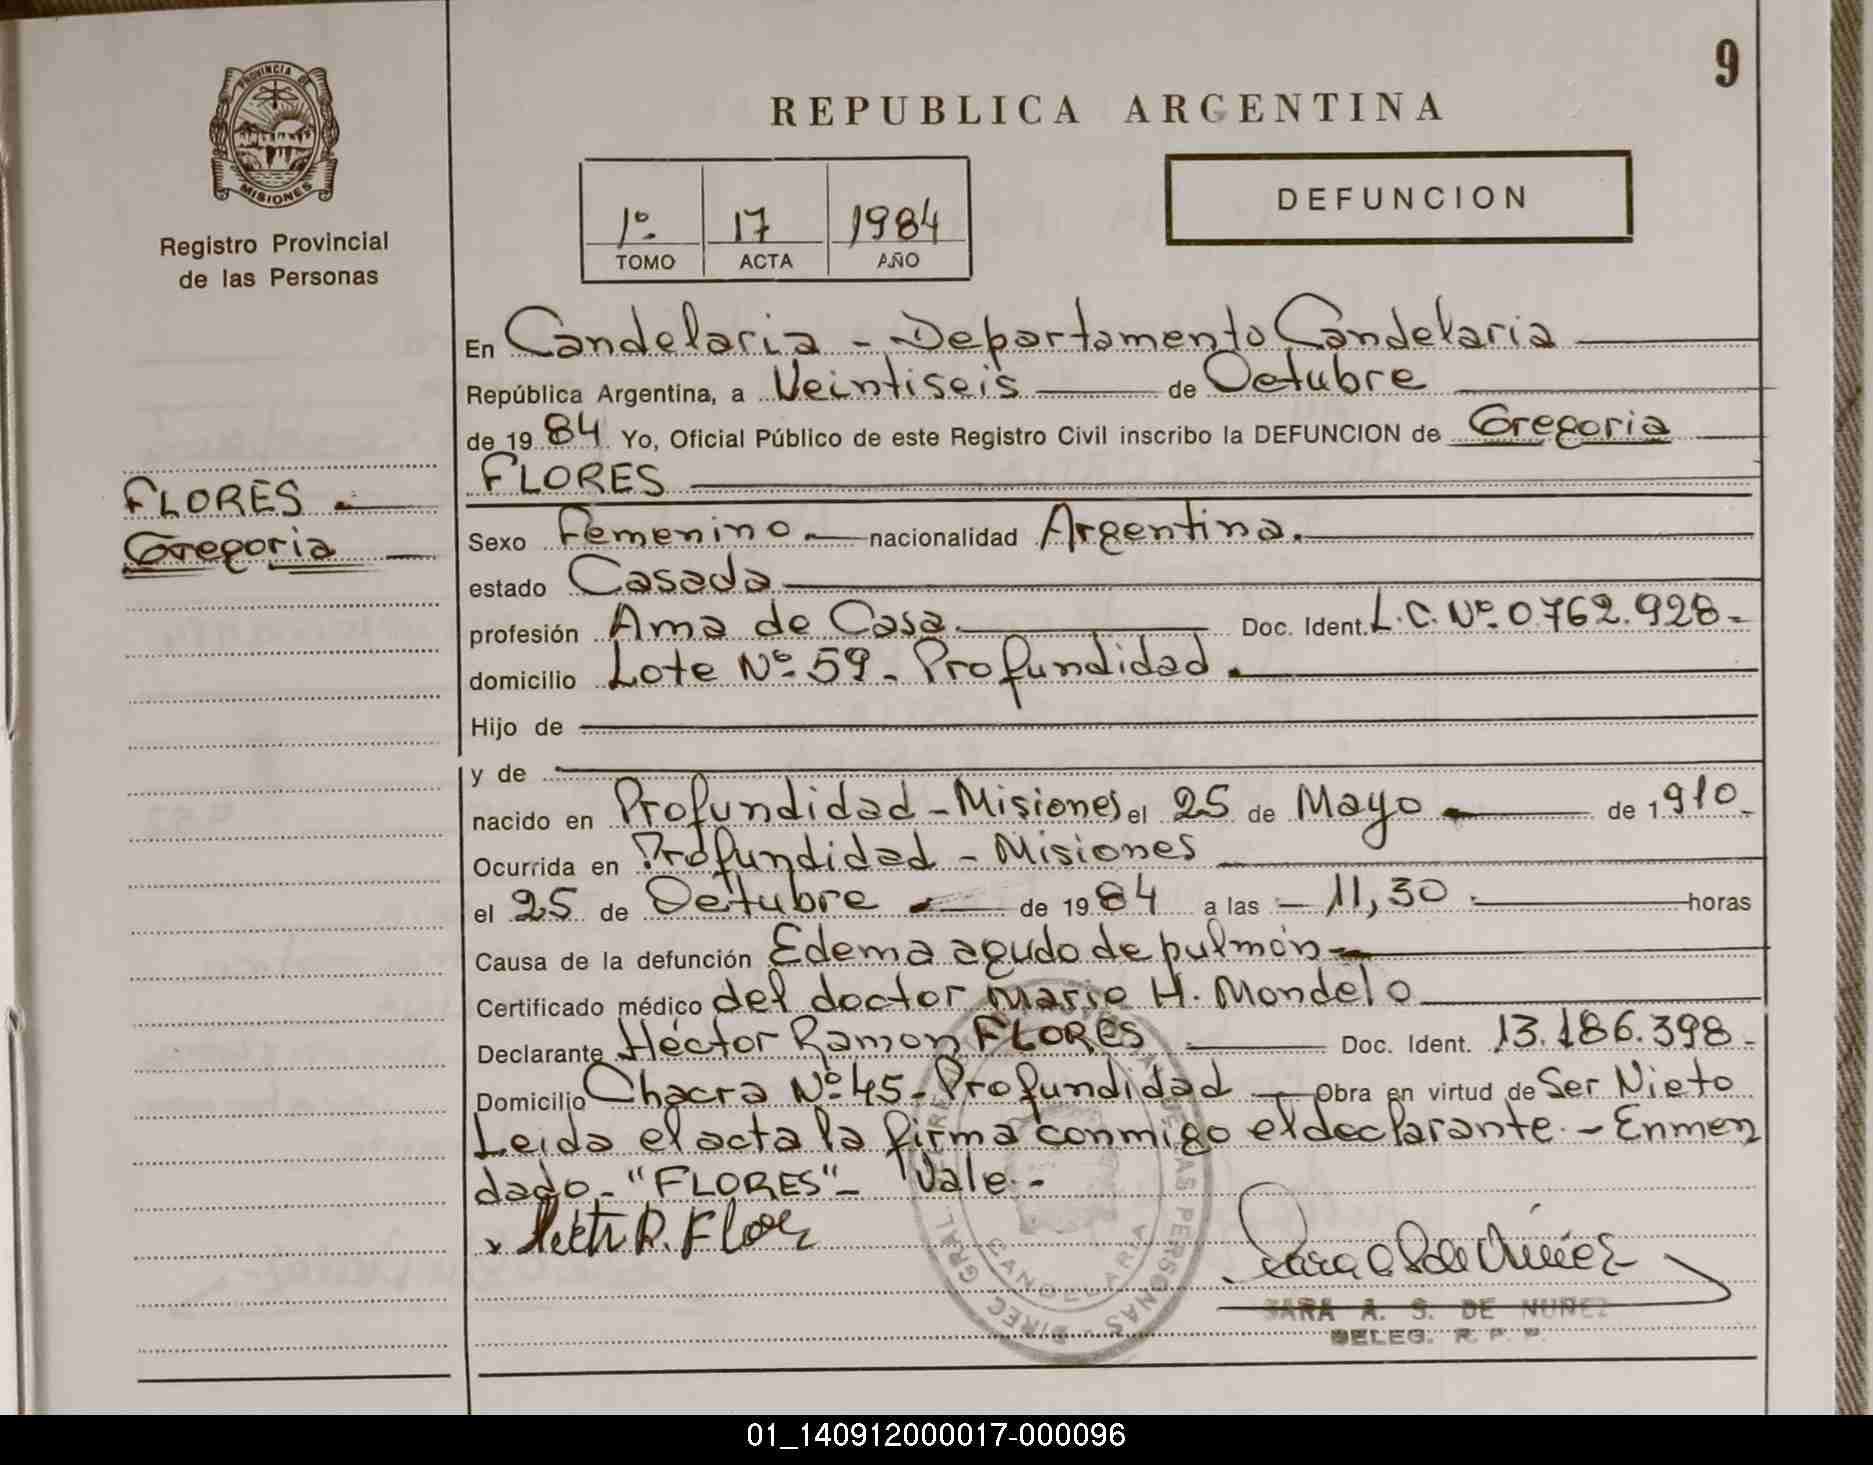 9
PROVINCIA DE
MISIONES
Registro Provincial
de las Personas
REPUBLICA ARGENTINA
1º 17 1984
TOMO ACTA AÑO
DEFUNCION
FLORES
Gregoria
En Candelaria - Departamento Candelaria
República Argentina, a Veintiseis de Octubre
de 1984 Yo, Oficial Público de este Registro Civil inscribo la DEFUNCION de Gregoria
FLORES
Sexo Femenino nacionalidad Argentina.
estado Casada
profesión Ama de Casa. Doc. Ident. L.C. Nº 0.762.928-
domicilio Lote Nº 59 - Profundidad.
Hijo de
y de
nacido en Profundidad - Misiones el 25 de Mayo de 1910-
Ocurrida en Profundidad - Misiones
el 25 de Octubre de 1984 a las - 11,30 horas
Causa de la defunción Edema agudo de pulmón
Certificado médico del doctor Mario H. Mondelo
Declarante Héctor Ramon FLORES Doc. Ident. 13.186.398-
Domicilio Chacra Nº 45 - Profundidad Obra en virtud de Ser Nieto
Leida el acta la firma conmigo el declarante - Enmen
dado - "FLORES" - Vale -
R. Flores
DIREC. GRAL. PERSONAS - CANDELARIA
SARA A. S. DE NUÑEZ
DELEG. R. P. P.
01_140912000017-000096